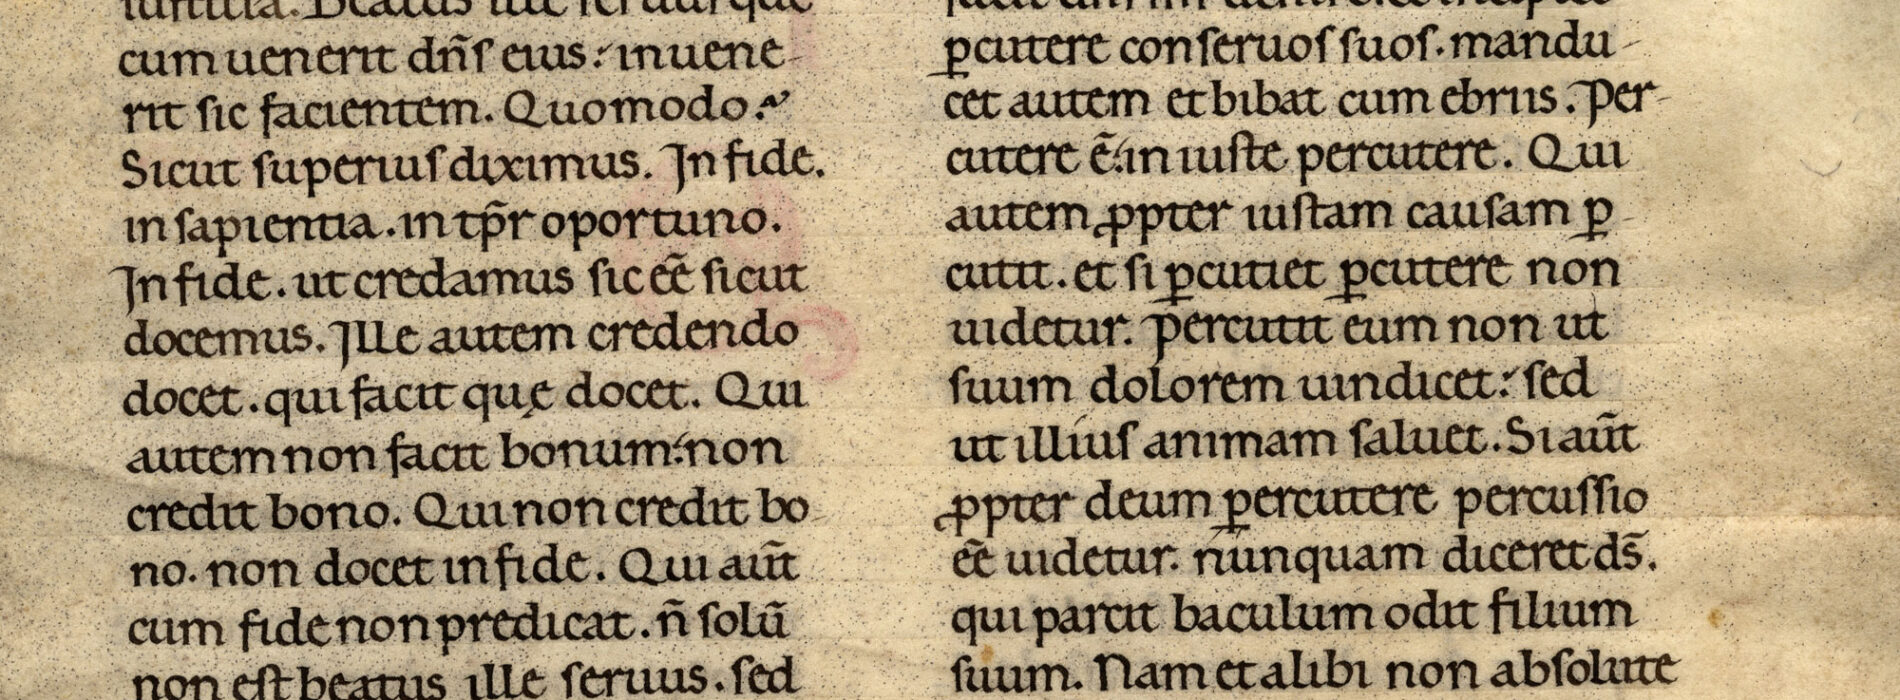 iustitia. Beatus ille seruus que
cum uenerit dn̄s eius: inuene-
rit sic facientem. Quomodo?
Sicut superius diximus. In fide.
in sapientia. in tp̄r oportuno.
In fide. ut credamus sic eē̄ sicut
docemus. Ille autem credendo
docet. qui facit quę docet. Qui
autem non facit bonum: non
credit bono. Qui non credit bo-
no. non docet in fide. Qui aūt
cum fide non predicat. n̄ solū
non est beatus ille seruus. sed
ꝑcutere conseruos suos. mandu-
cet autem et bibat cum ebriis. Per-
cutere ē: iniuste percutere. Qui
autem ꝓpter iustam causam ꝑ-
cutit. et si ꝑcutiet ꝑcutere non
uidetur. Percutit eum non ut
suum dolorem uindicet: sed
ut illius animam saluet. Si aūt
ꝓpter deum percutere percussio
eē̄ uidetur. nunquam diceret ds̄.
qui parcit baculum odit filium
suum. Nam et alibi non absolute